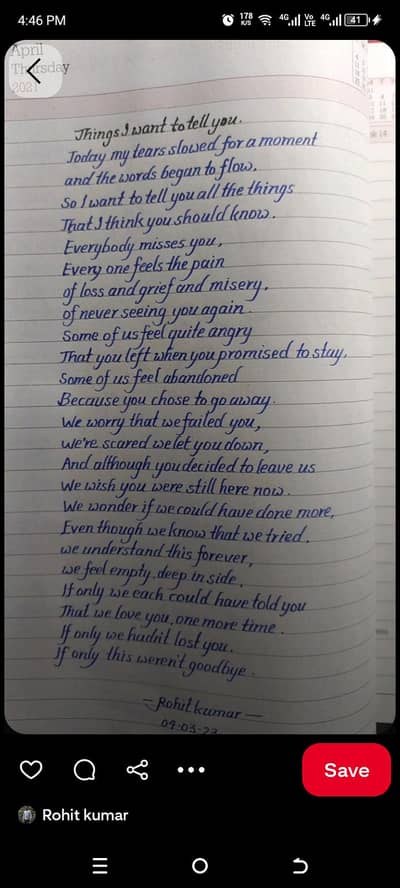 4:46 PM
178 K/S 4G Vo LTE 4G 41
April
Thursday
2021
Things I want to tell you.
Today my tears slowed for a moment
and the words began to flow,
So I want to tell you all the things
That I think you should know.
Everybody misses you,
Every one feels the pain
of loss and grief and misery,
of never seeing you again.
Some of us feel quite angry
That you left when you promised to stay,
Some of us feel abandoned
Because you chose to go away.
We worry that we failed you,
We're scared we let you down,
And although you decided to leave us
We wish you were still here now.
We wonder if we could have done more,
Even though we know that we tried.
we understand this forever,
we feel empty deep in side.
If only we each could have told you
That we love you, one more time.
If only we hadn't lost you.
If only this weren't goodbye.
- Rohit kumar -
09-03-23
Save
Rohit kumar